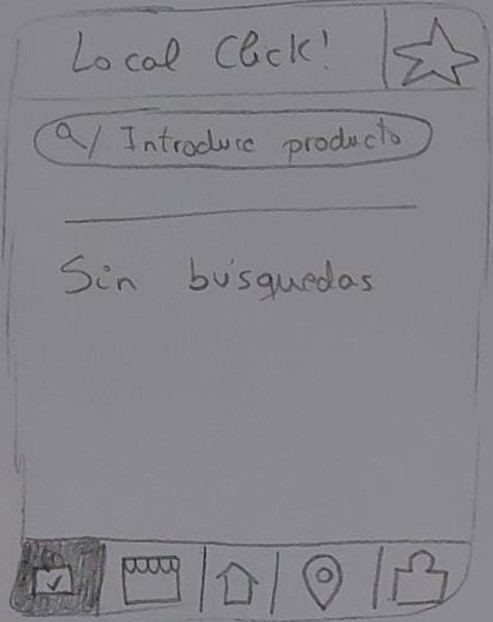 Local Click!
Introduce producto
Sin búsquedas